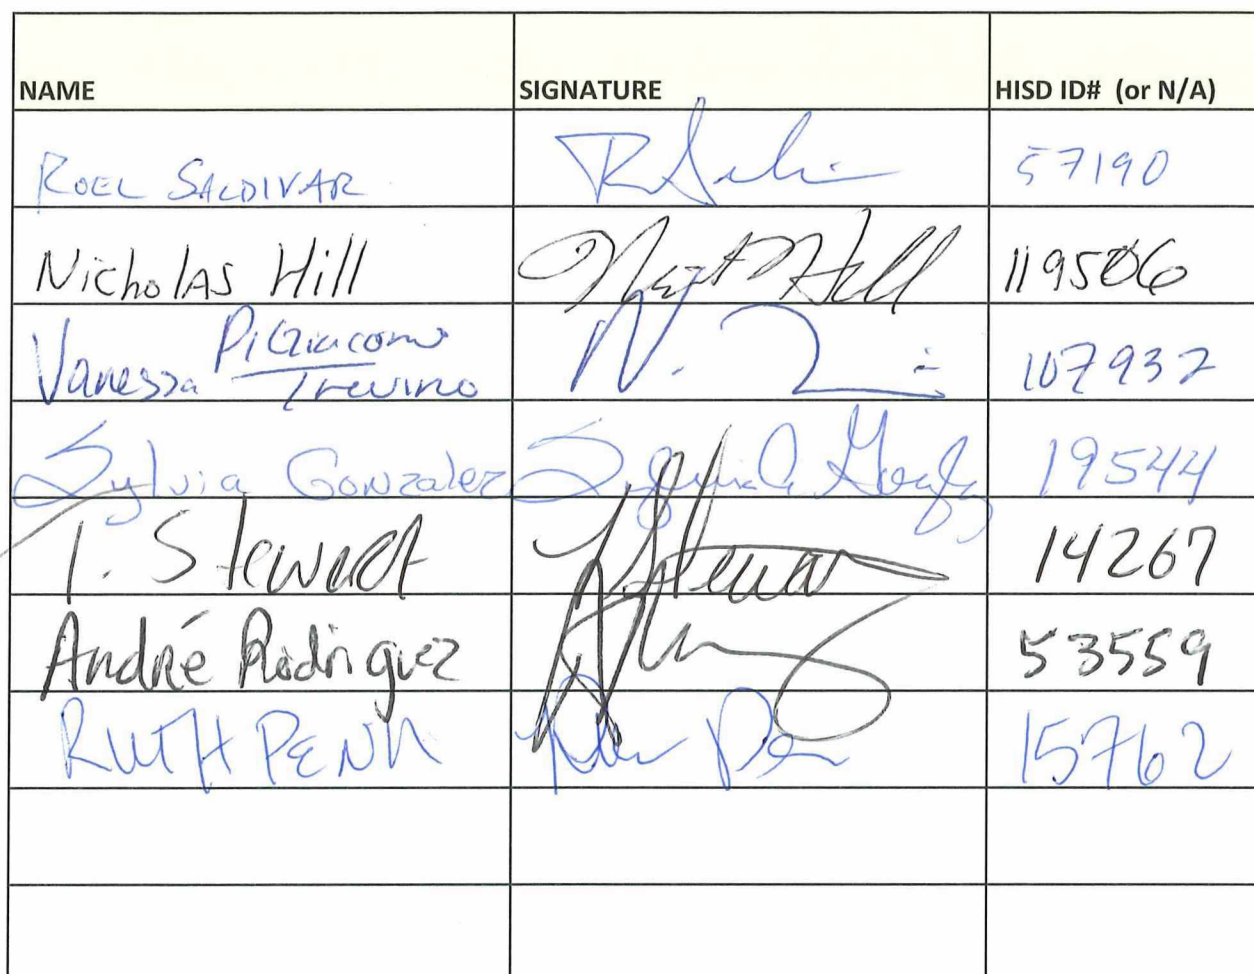 NAME SIGNATURE HISD ID# (or N/A)
ROEL SALDIVAR 57190
Nicholas Hill 119506
Vanessa DiGiacomo Trevino 107932
Sylvia Gonzalez 19544
T. Stewart T Stewart 14267
André Rodriguez 53559
RUTH PENN 15762